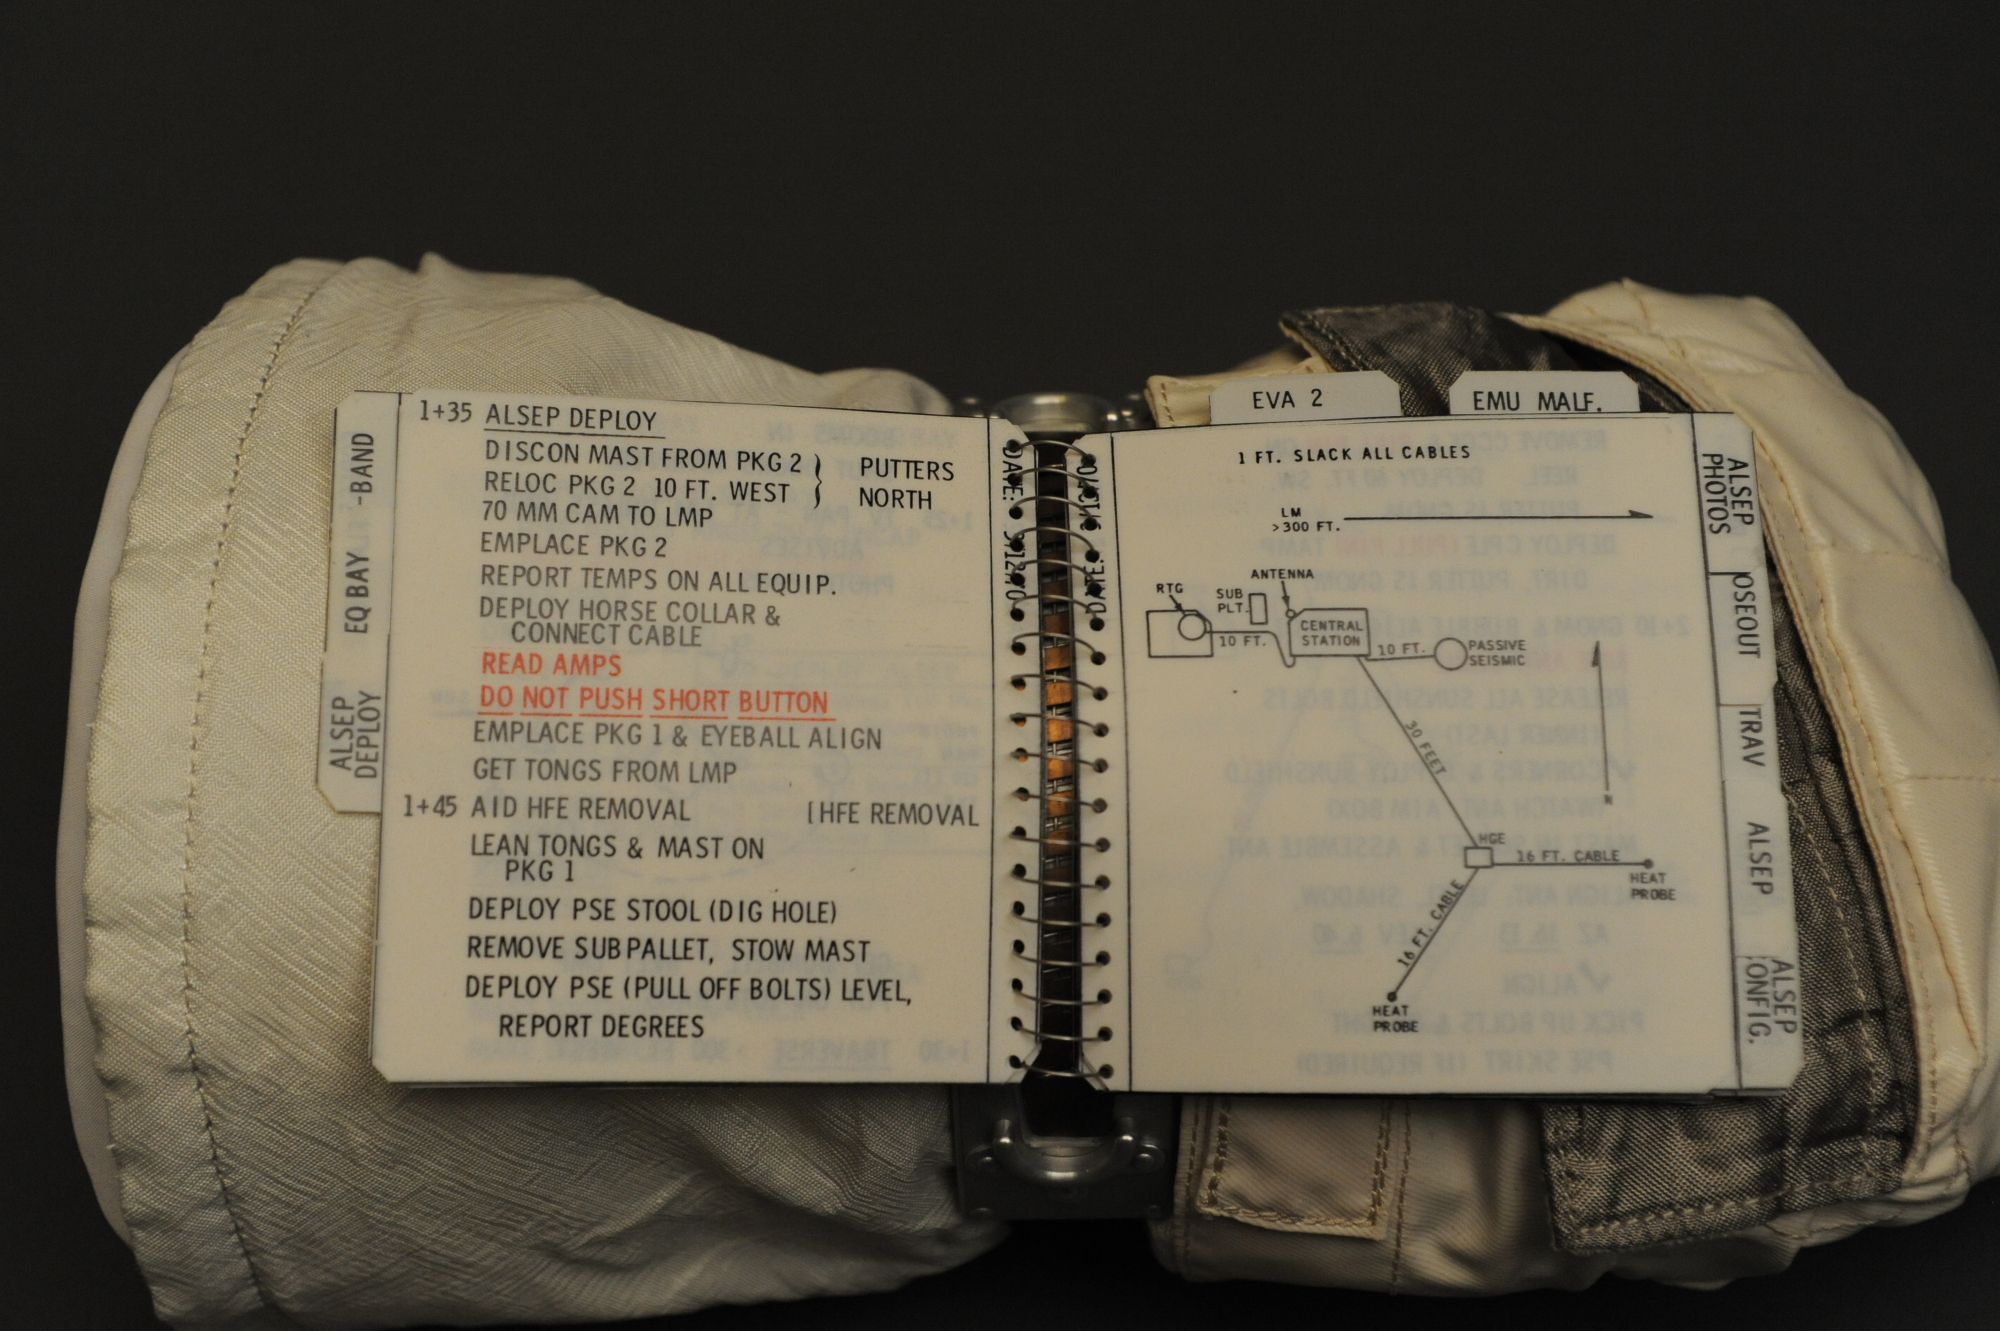 1+35 ALSEP DEPLOY
DISCON MAST FROM PKG 2 } PUTTERS
RELOC PKG 2 10 FT. WEST } NORTH
70 MM CAM TO LMP
EMPLACE PKG 2
REPORT TEMPS ON ALL EQUIP.
DEPLOY HORSE COLLAR &
CONNECT CABLE
READ AMPS
DO NOT PUSH SHORT BUTTON
EMPLACE PKG 1 & EYEBALL ALIGN
GET TONGS FROM LMP
1+45 AID HFE REMOVAL [HFE REMOVAL
LEAN TONGS & MAST ON
PKG 1
DEPLOY PSE STOOL (DIG HOLE)
REMOVE SUBPALLET, STOW MAST
DEPLOY PSE (PULL OFF BOLTS) LEVEL,
REPORT DEGREES
EQ BAY
-BAND
ALSEP
DEPLOY
DATE:
DATE:
EVA 2
EMU MALF.
1 FT. SLACK ALL CABLES
LM
>300 FT.
ANTENNA
RTG
SUB
PLT.
10 FT.
CENTRAL
STATION
10 FT.
PASSIVE
SEISMIC
30 FEET
N
HGE
16 FT. CABLE
HEAT
PROBE
16 FT. CABLE
HEAT
PROBE
ALSEP
PHOTOS
OSEOUT
TRAV
ALSEP
ALSEP
ONFIG.